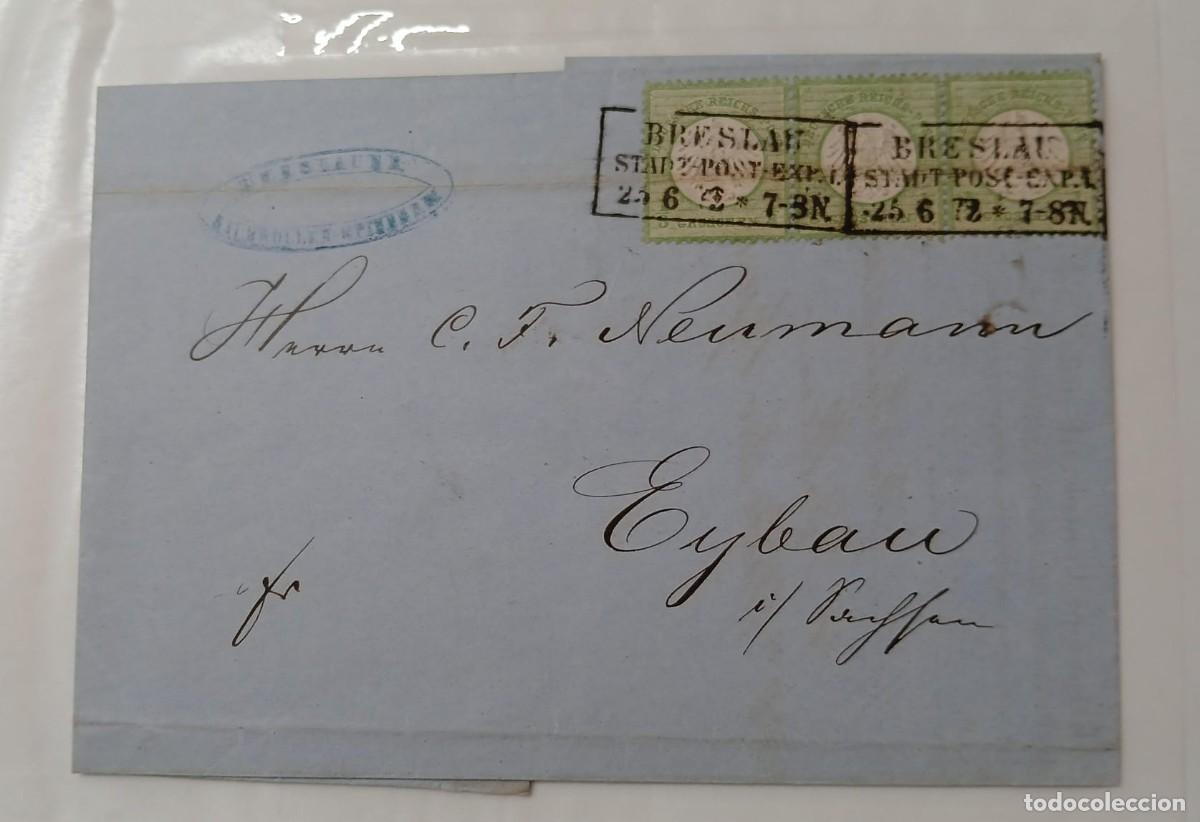 BRESLAU
STADT-POST-EXP.I.
25 6 72 * 7-8N.
BRESLAU
STADT-POST-EXP.I.
25 6 72 * 7-8N.
BRESLAUER
Herrn C. F. Neumann
Eybau
i/ Sachsen
fr
todocoleccion